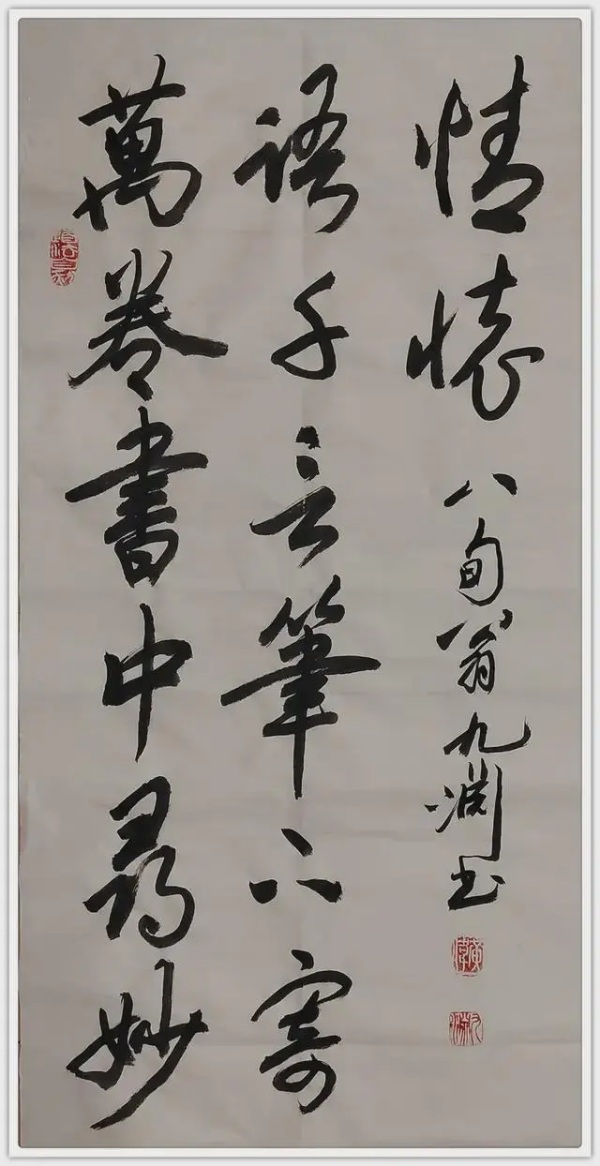 萬卷書中尋妙
語千言筆下寄
情懷
八旬翁九淵书